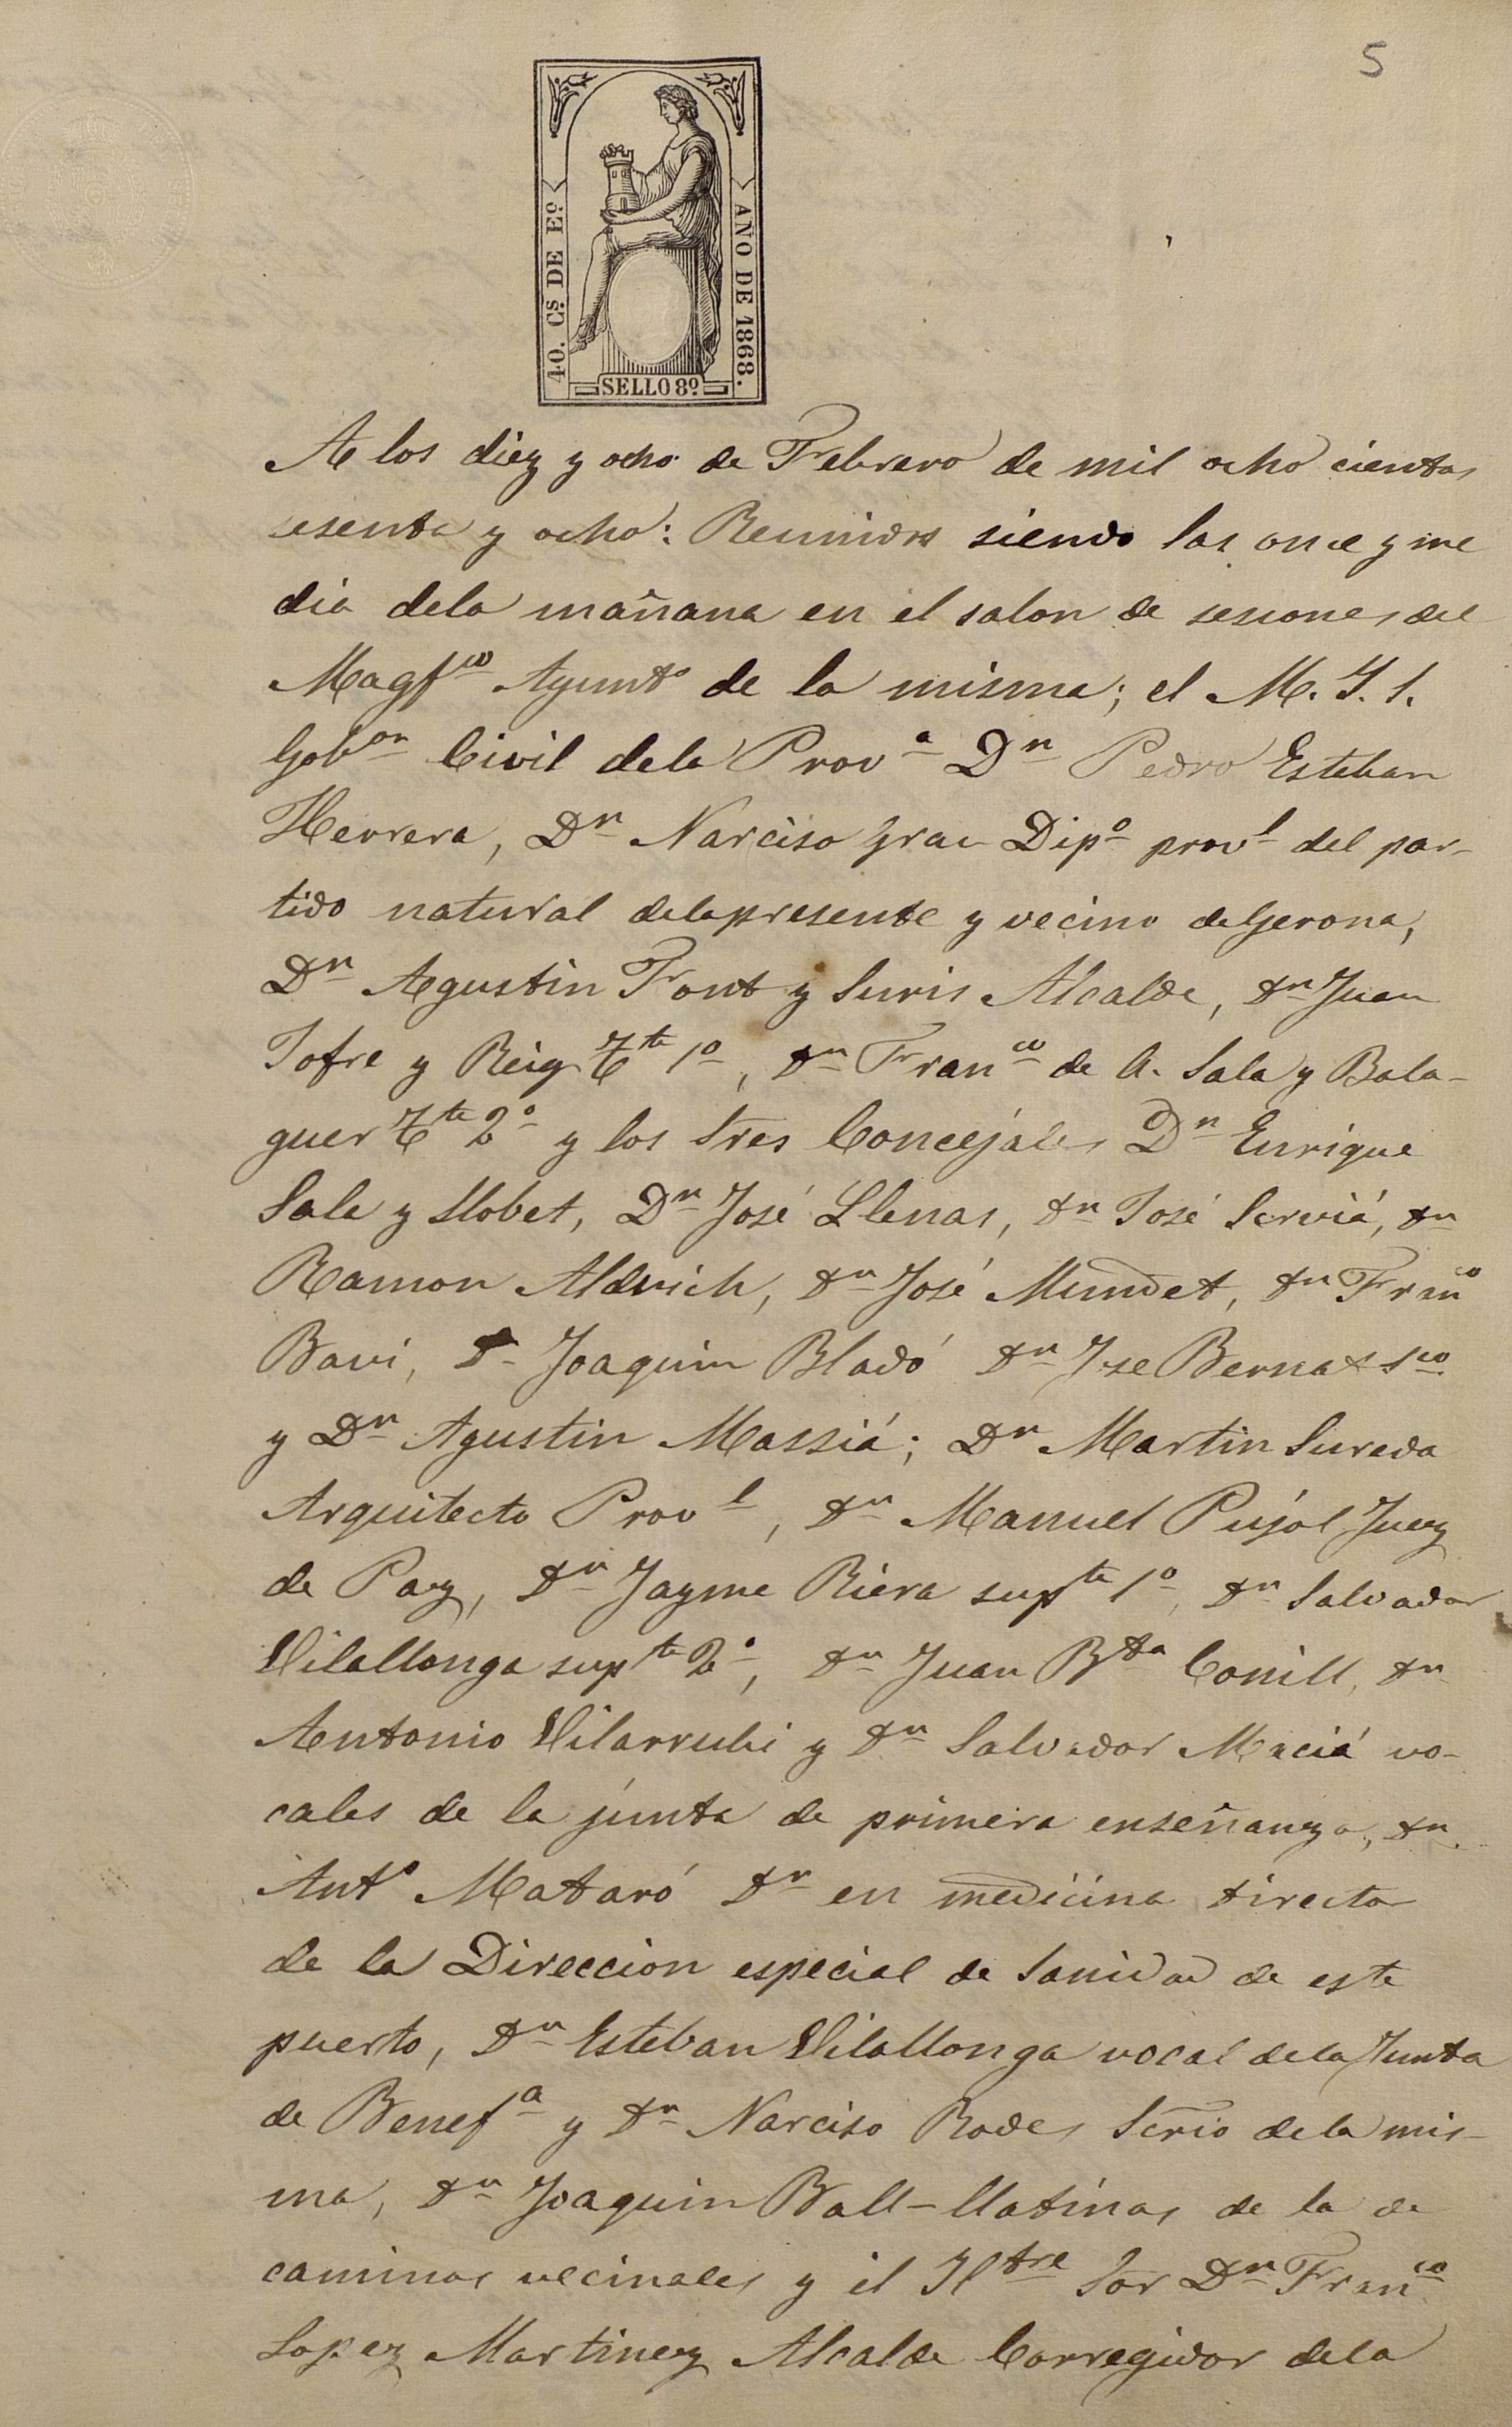 5
40. Cs. DE Eo.
AÑO DE 1868.
SELLO 8º
A los diez y ocho de Febrero de mil ocho cientos
sesenta y ocho: Reunidos siendo las once y me
dia dela mañana en el salon de sesiones del
Magfco Ayunto de la misma; el M. Y. S.
Gobor Civil dela Prova Dn Pedro Esteban
Herrera, Dn Narciso Grau Dipo provl del par-
tido natural dela presente y vecino de Gerona,
Dn Agustin Font y Suris Alcalde, Dn Juan
Jofre y Reig Tte 1o, Dn Franco de A. Sala y Bala-
guer Tte 2o y los Sres Concejales Dn Enrique
Sala y Llobet, Dn José Llenas, Dn José Serviá, Dn
Ramon Aldrich, Dn José Mundet, Dn Franco
Bavi, D Joaquin Bladó Dn Jse Bernat Sco
y Dn Agustin Massiá; Dn Martin Sureda
Arquitecto Provl, Dn Manuel Pujol Juez
de Paz, Dn Jayme Riera supte 1o, Dn Salvador
Vilallonga supte 2o, Dn Juan Bta Conill, Dn
Antonio Vilarrubi y Dn Salvador Maciá vo-
cales de la junta de primera enseñanza, Dn
Anto Mataró Dr en medicina director
de la Direccion especial de Sanidad de este
puerto, Dn Esteban Vilallonga vocal dela Junta
de Benefa y Dn Narciso Rodes Scrio dela mis-
ma, Dn Joaquin Ball-llatinas de la de
caminos vecinales y el Yltre Sor Dn Franco
Lopez Martinez Alcalde Corregidor dela